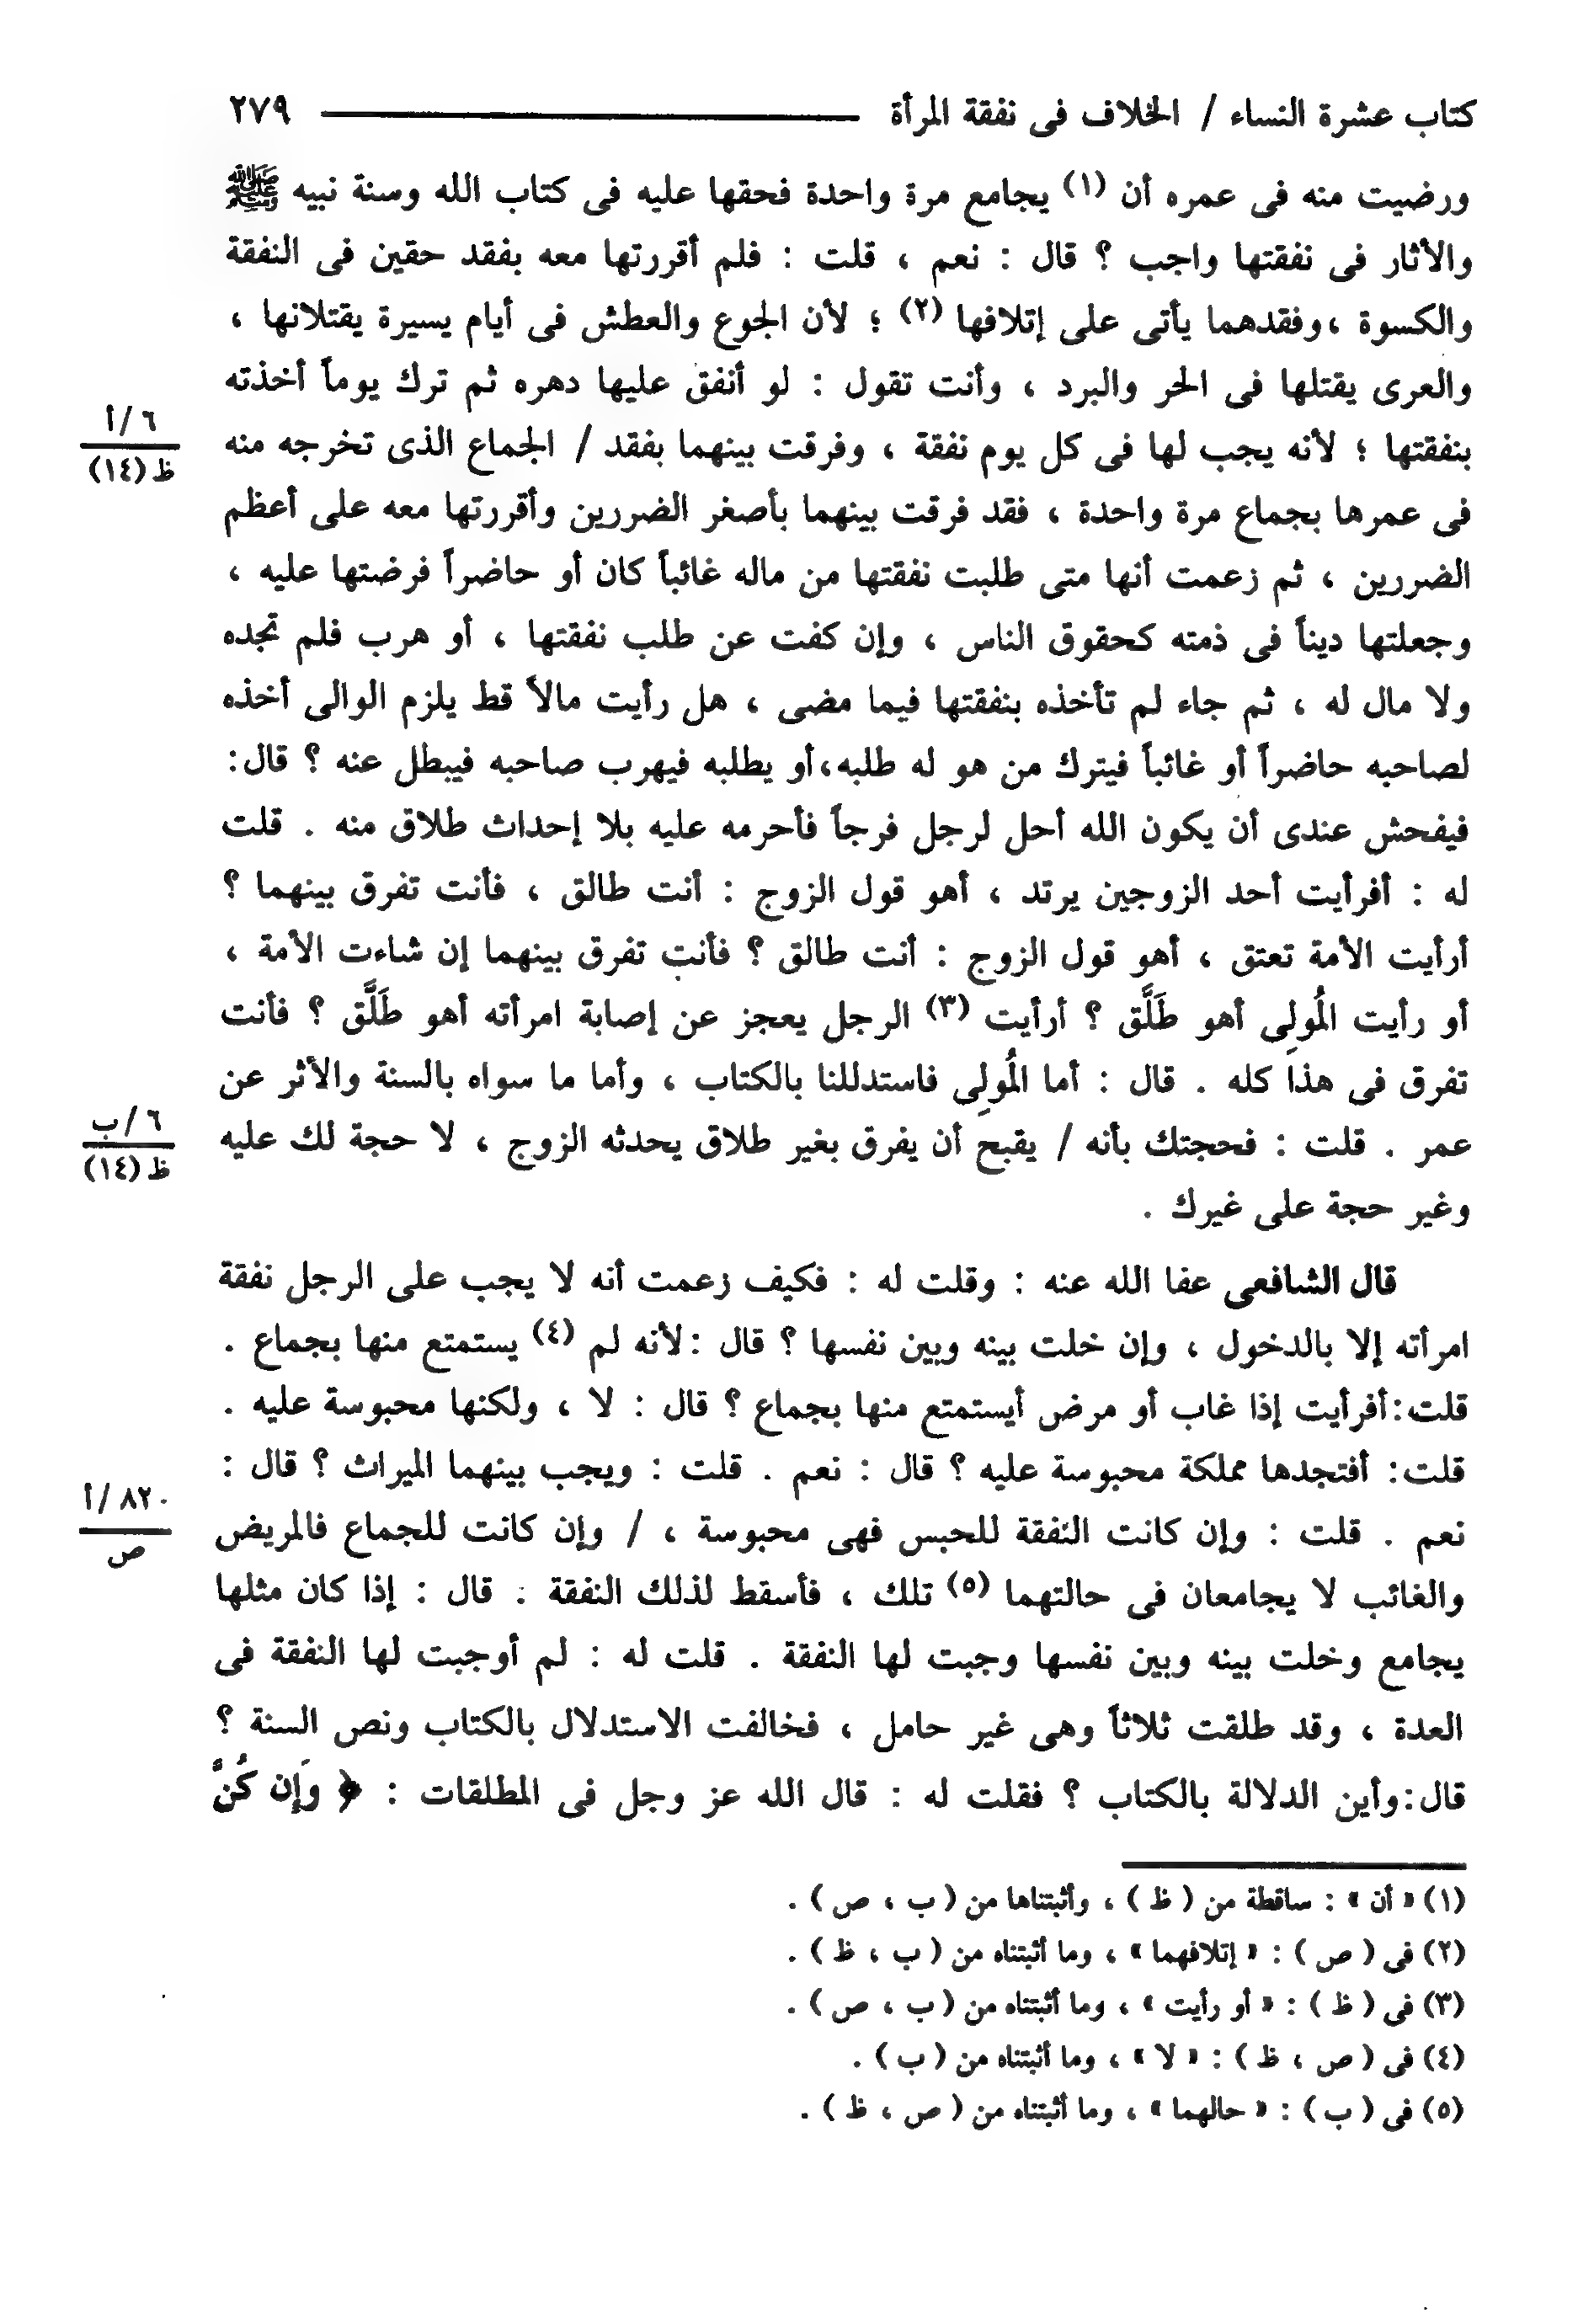 كتاب عشرة النساء / الخلاف فى نفقة المرأة ٢٧٩
ورضيت منه فى عمره أن (١) يجامع مرة واحدة فحقها عليه فى كتاب الله وسنة نبيه ﷺ
والأثار فى نفقتها واجب ؟ قال : نعم ، قلت : فلم أقررتها معه بفقد حقين فى النفقة
والكسوة ،وفقدهما يأتى على إتلافها (٢) ؛ لأن الجوع والعطش فى أيام يسيرة يقتلانها ،
والعرى يقتلها فى الحر والبرد ، وأنت تقول : لو أنفق عليها دهره ثم ترك يوماً أخذته
٦ /أ
ظ (١٤)
بنفقتها ؛ لأنه يجب لها فى كل يوم نفقة ، وفرقت بينهما بفقد / الجماع الذى تخرجه منه
فى عمرها بجماع مرة واحدة ، فقد فرقت بينهما بأصغر الضررين وأقررتها معه على أعظم
الضررين ، ثم زعمت أنها متى طلبت نفقتها من ماله غائباً كان أو حاضراً فرضتها عليه ،
وجعلتها ديناً فى ذمته كحقوق الناس ، وإن كفت عن طلب نفقتها ، أو هرب فلم تجده
ولا مال له ، ثم جاء لم تأخذه بنفقتها فيما مضى ، هل رأيت مالاً قط يلزم الوالى أخذه
لصاحبه حاضراً أو غائباً فيترك من هو له طلبه،أو يطلبه فيهرب صاحبه فيبطل عنه ؟ قال:
فيفحش عندى أن يكون الله أحل لرجل فرجاً فأحرمه عليه بلا إحداث طلاق منه . قلت
له : أفرأيت أحد الزوجين يرتد ، أهو قول الزوج : أنت طالق ، فأنت تفرق بينهما ؟
أرأيت الأمة تعتق ، أهو قول الزوج : أنت طالق ؟ فأنت تفرق بينهما إن شاءت الأمة ،
أو رأيت المُولِى أهو طَلَّق ؟ أرأيت (٣) الرجل يعجز عن إصابة امرأته أهو طَلَّق ؟ فأنت
تفرق فى هذا كله . قال : أما المُولِى فاستدللنا بالكتاب ، وأما ما سواه بالسنة والأثر عن
٦ /ب
ظ (١٤)
عمر . قلت : فحجتك بأنه / يقبح أن يفرق بغير طلاق يحدثه الزوج ، لا حجة لك عليه
وغير حجة على غيرك .
قال الشافعى عفا الله عنه : وقلت له : فكيف زعمت أنه لا يجب على الرجل نفقة
امرأته إلا بالدخول ، وإن خلت بينه وبين نفسها ؟ قال :لأنه لم (٤) يستمتع منها بجماع .
قلت:أفرأيت إذا غاب أو مرض أيستمتع منها بجماع ؟ قال : لا ، ولكنها محبوسة عليه .
قلت: أفتجدها مملكة محبوسة عليه ؟ قال : نعم . قلت : ويجب بينهما الميراث ؟ قال :
٨٢٠ /أ
ص
نعم . قلت : وإن كانت النفقة للحبس فهى محبوسة ، / وإن كانت للجماع فالمريض
والغائب لا يجامعان فى حالتهما (٥) تلك ، فأسقط لذلك النفقة . قال : إذا كان مثلها
يجامع وخلت بينه وبين نفسها وجبت لها النفقة . قلت له : لم أوجبت لها النفقة فى
العدة ، وقد طلقت ثلاثاً وهى غير حامل ، فخالفت الاستدلال بالكتاب ونص السنة ؟
قال:وأين الدلالة بالكتاب ؟ فقلت له : قال الله عز وجل فى المطلقات : ﴿ وَإِن كُنَّ
(١) « أن » : ساقطة من ( ظ ) ، وأثبتناها من ( ب ، ص ) .
(٢) فى ( ص ) : « إتلافهما » ، وما أثبتناه من ( ب ، ظ ) .
(٣) فى ( ظ ) : « أو رأيت » ، وما أثبتناه من ( ب ، ص ) .
(٤) فى ( ص ، ظ ) : « لا » ، وما أثبتناه من ( ب ) .
(٥) فى ( ب ) : « حالهما » ، وما أثبتناه من ( ص ، ظ ) .